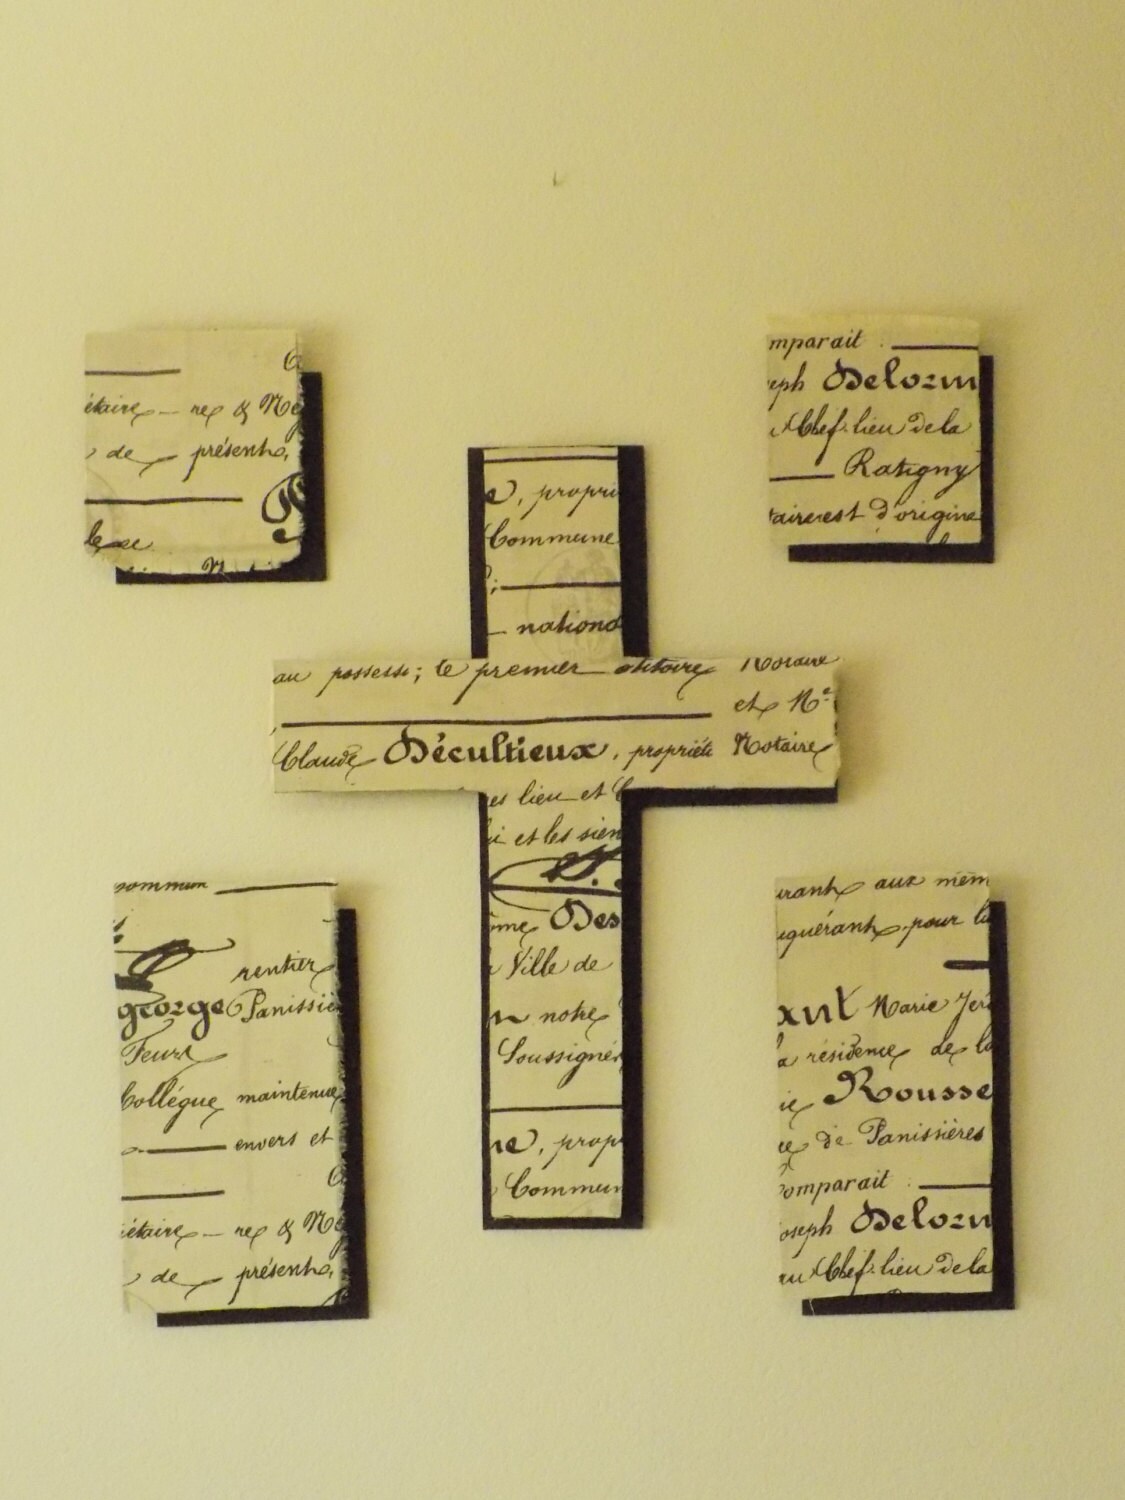 étaire — re & Me
de présente,
mparait
eph Delorm
Chef-lieu de la
Ratigny
taire est d'origine
e, propri
Commune
— nationa
au possessi; le premier Notaire
et Me
Claude Décultieux, propriéte Notaire
es lieu et C
ui et les sien
me Des
Ville de
n notre
Soussignés
ne, prop
Commun
commun
rentier
george Panissiè
Feurs
Collégue maintenue
envers et
iétaire — re & Me
de présente,
urant aux mem
quérant pour la
ant Marie Jer
a résidence de la
ie Rousse
ce de Panissières
comparait
oseph Delorm
au Chef-lieu de la